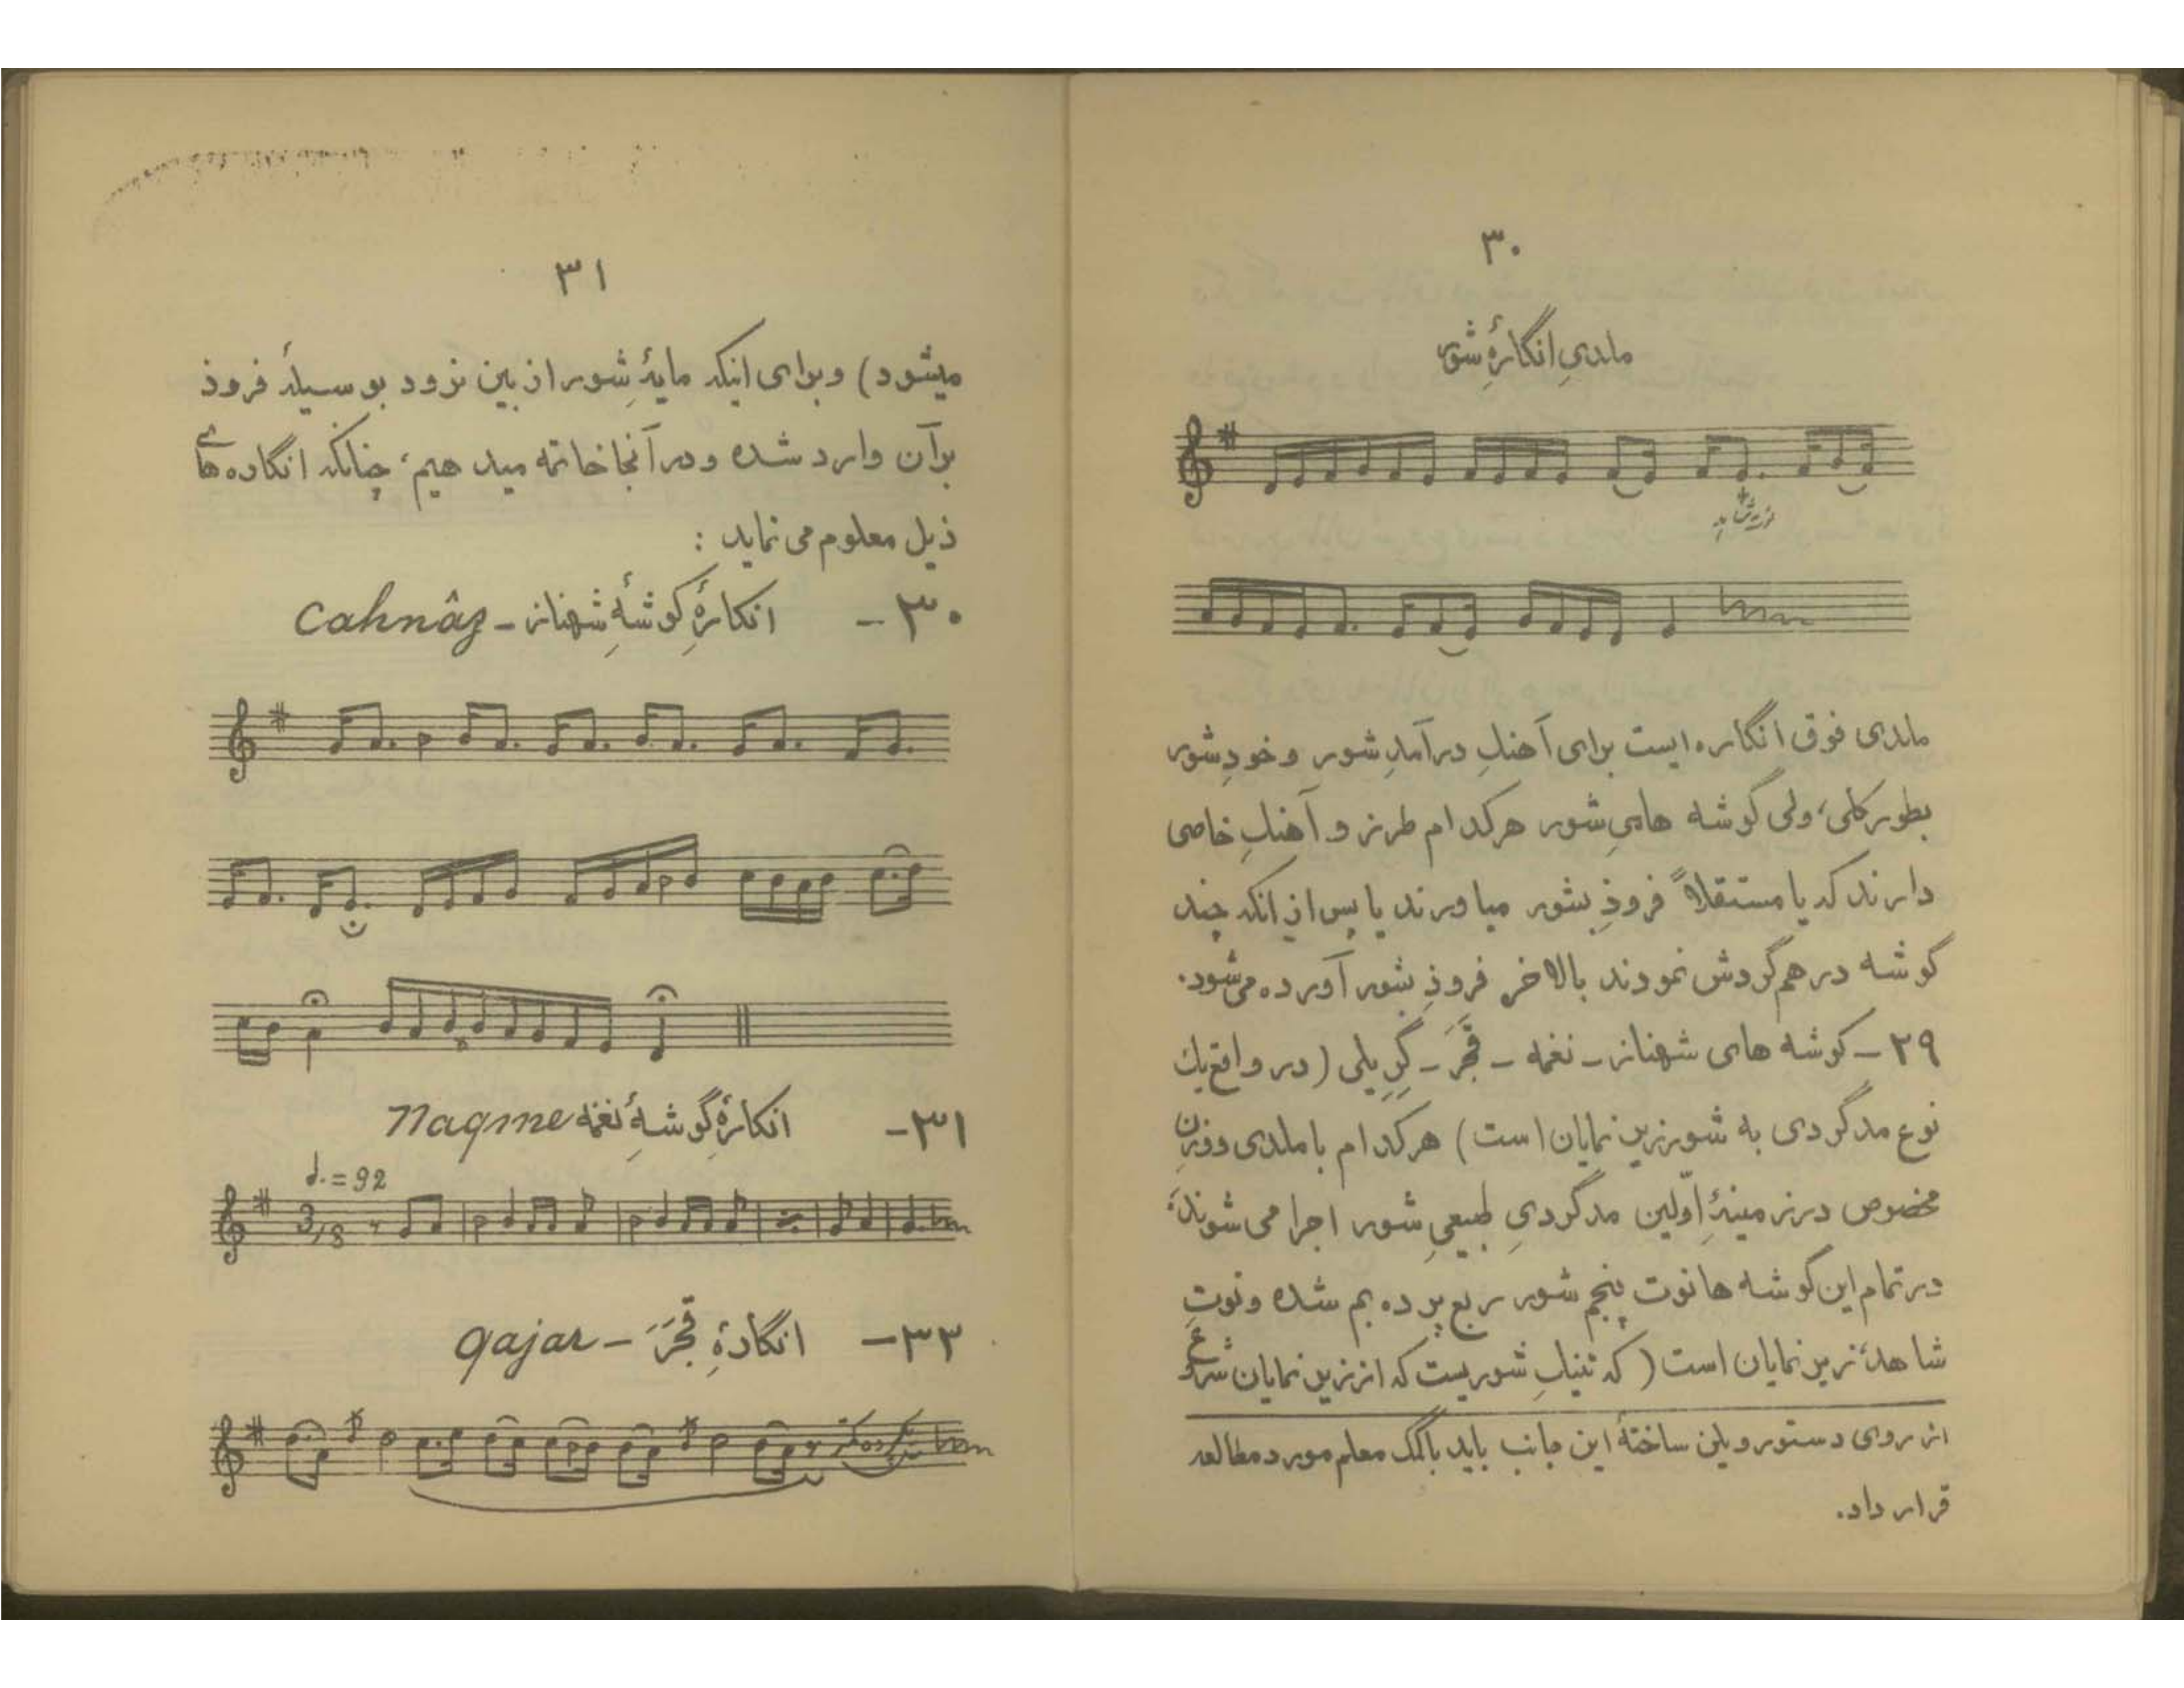 ۳۰
ملدیِ انگارۀِ شور
نت شاهد
ملدی فوق انگاره ایست برای آهنگِ درآمدِ شور و خودِ شور
بطور کلی، ولی گوشه هایِ شور هرکدام طرز و آهنگِ خاصی
دارند که یا مستقلاً فرودِ بشور میاورند یا پس از انکه چند
گوشه درهم گردش نمودند بالاخره فرودِ بشور آورده می شود.
۲۹ - گوشه های شهناز - نغمه - قَجَر - گریلی (در واقع یک
نوع مدگردی به شور زیرین نمایان است) هرکدام با ملدی ووزنِ
مخصوص در زمینۀِ اوّلین مدگردیِ طبیعیِ شور اجرا می شوند؛
در تمام این گوشه ها نوت پنجم شور ربع پرده بم شده و نوتِ
شاهد، زیرین نمایان است (که تنیکِ شوریست که از زیرین نمایان شروع
از روی دستور ویلن ساختۀ این جانب باید باکمک معلم مورد مطالعه
قرار داد.
۳۱
میشود) وبرای اینکه مایۀِ شور از بین نرود بوسیلۀ فرود
برآن وارد شده و در آنجا خاتمه میدهیم؛ چنانکه انگاره های
ذیل معلوم می نماید :
۳۰ - انگارۀِ گوشۀِ شهناز - Cahnâz
۳۱ - انگارۀِ گوشۀِ نغمه Naqme
♩. = 92
3/8
۳۳ - انگارۀِ قَجَر - qajar